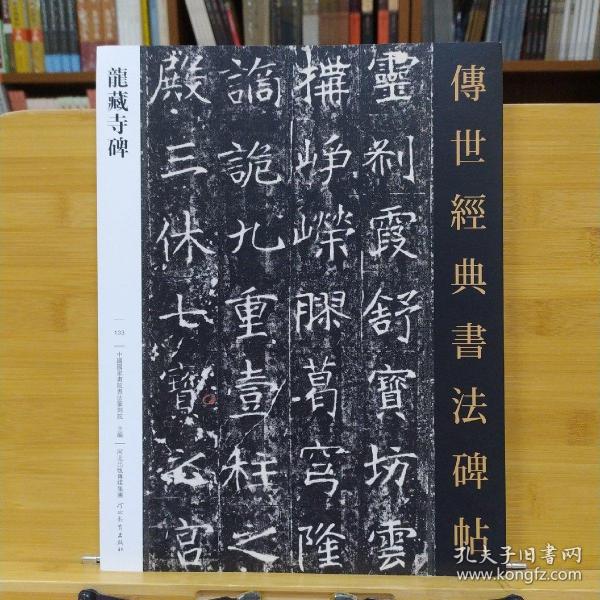 傳世經典書法碑帖
靈刹霞舒寶坊雲
構崢嶸膠葛穹隆
譎詭九重壹柱之
殿三休七寶之宮
龍藏寺碑
133
中國國家畫院書法篆刻院 主編
河北出版傳媒集團
河北教育出版社
孔夫子旧书网
www.kongfz.com